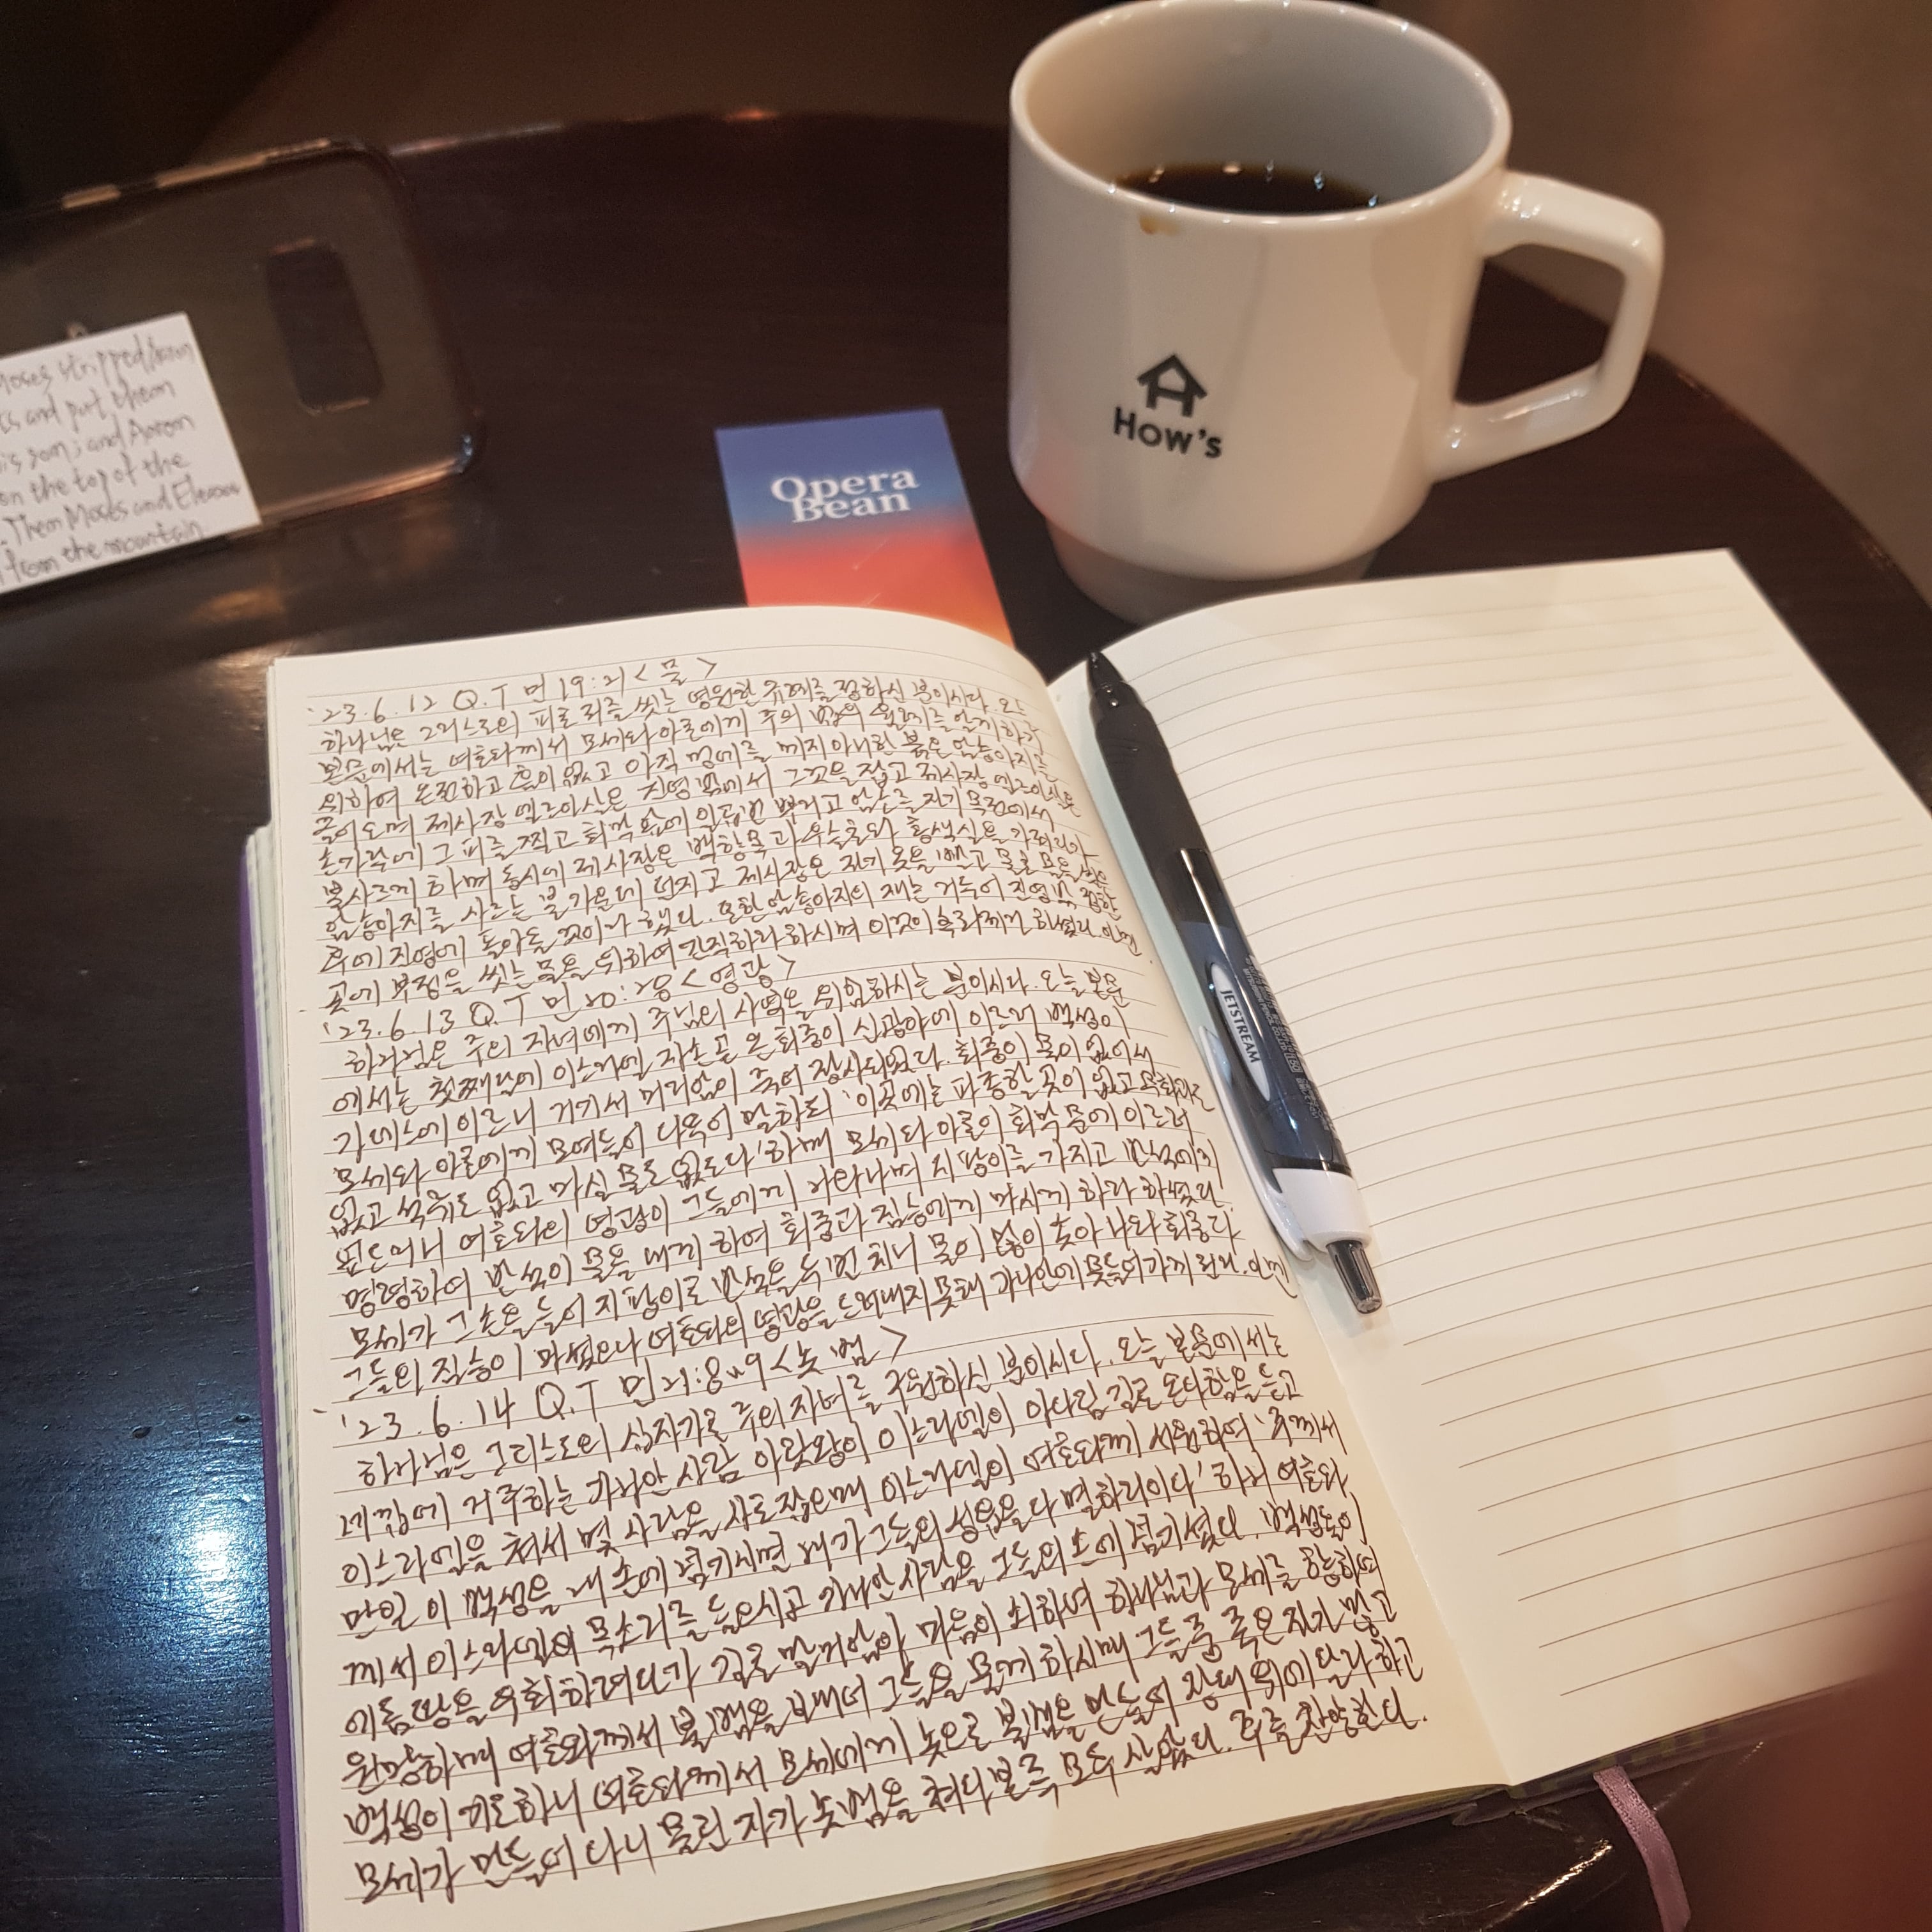 Moses stripped Aaron
and put them
his son; and Aaron
on the top of the
Then Moses and Eleazar
from the mountain
Opera
Bean
How's
JETSTREAM
'23.6.12 Q.T 민19:21 <물>
하나님은 그리스도의 피로 죄를 씻는 영원한 규례를 정하신 분이시다. 오늘
본문에서는 여호와께서 모세와 아론에게 주의 법의 율례를 알게 하기
위하여 온전하고 흠이 없고 아직 멍에를 메지 아니한 붉은 암송아지를
끌어오며 제사장 엘르아살은 진영 밖에서 그것을 잡고 제사장 엘르아살은
손가락에 그 피를 찍고 회막 앞에 일곱번 뿌리고 암소를 자기 목전에서
불사르게 하며 동시에 제사장은 백향목과 우슬초와 홍색실을 가져다가
암송아지를 사르는 불 가운데 던지고 제사장은 자기 옷을 빨고 물로 몸을 씻은
후에 진영에 돌아올 것이라 했다. 또한 암송아지의 재는 거두어 진영 밖 정한
곳에 부정을 씻는 물을 위하여 간직하라 하시며 이것이 속죄제라 하셨다. 아멘.
'23.6.13 Q.T 민20:28 <영광>
하나님은 주의 자녀에게 주님의 사역을 위임하시는 분이시다. 오늘 본문
에서는 첫째달에 이스라엘 자손 곧 온 회중이 신광야에 이르러 백성이
가데스에 이르니 거기서 미리암이 죽어 장사되었다. 회중이 물이 없어서
모세와 아론에게 모여들어 다투어 말하되 '이곳에는 파종할 곳이 없고 무화과도
없고 석류도 없고 마실 물도 없도다' 하매 모세와 아론이 회막 문에 이르러
엎드리니 여호와의 영광이 그들에게 나타나며 지팡이를 가지고 반석에게
명령하여 반석이 물을 내게 하여 회중과 짐승에게 마시게 하라 하셨다.
모세가 그 손을 들어 지팡이로 반석을 두번 치니 물이 많이 솟아 나와 회중과
그들의 짐승이 마셨으나 여호와의 영광을 드러내지 못해 가나안에 못들어가게 된다. 아멘
'23.6.14 Q.T 민21:8~9 <놋 뱀>
하나님은 그리스도의 십자가로 주의 자녀를 구원하신 분이시다. 오늘 본문에서는
네겝에 거주하는 가나안 사람 아랏왕이 이스라엘이 아다림 길로 온다함을 듣고
이스라엘을 쳐서 몇 사람을 사로잡으매 이스라엘이 여호와께 서원하여 '주께서
만일 이 백성을 내 손에 넘기시면 내가 그들의 성읍을 다 멸하리이다' 하니 여호와
께서 이스라엘의 목소리를 들으시고 가나안 사람을 그들의 손에 넘기셨다. 백성들이
에돔 땅을 우회하려다가 길로 말미암아 마음이 상하여 하나님과 모세를 향하여
원망하매 여호와께서 불뱀을 보내어 그들을 물게 하시매 그들 중 죽은 자가 많고
백성이 기도하니 여호와께서 모세에게 놋으로 불뱀을 만들어 장대 위에 달라 하고
모세가 만들어 다니 물린 자가 놋뱀을 쳐다본즉 모두 살았다. 주를 찬양한다.